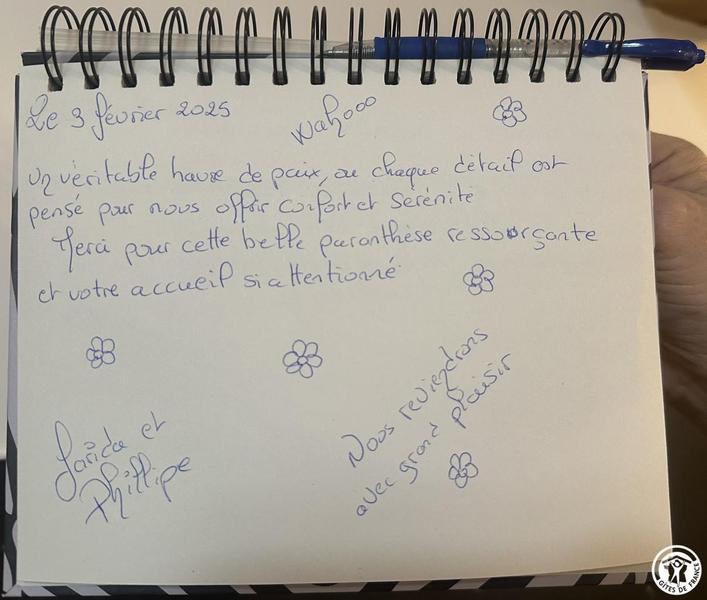 Le 3 février 2025
Wahooo
Un véritable havre de paix, ou chaque détail est
pensé pour nous offrir confort et Sérénité
Merci pour cette belle paranthèse ressourçante
et votre accueil si attentionné
Nous reviendrons
avec grand plaisir
et
Phillipe
GÎTES DE FRANCE